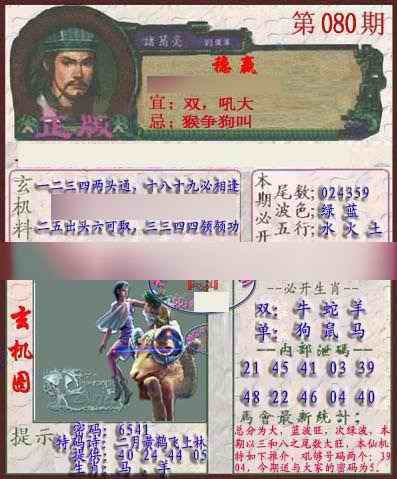 第080期
諸葛亮
稳赢
宜：双，吼大
忌：猴争狗叫
正版
玄机料
一二三四两头通，十八十九必相逢
二五出头六可取，三三四四领领功
本期必开
尾数：024359
波色：绿 蓝
五行：水 火 土
玄机图
必开生肖
双：牛 蛇 羊
单：狗 鼠 马
内部泄码
21 45 41 03 39
48 22 46 04 40
馬會最新統計：
总分为大，蓝波旺，次绿波，本
期以三和八之尾数大旺，本仙机
特如下推介，吼够号码两个：39
04，今期送与大家的密码为5．
提示
密码：6541
特码诗：二月黄鹤飞上林
提倍：40 24 44 05
生肖：马．羊